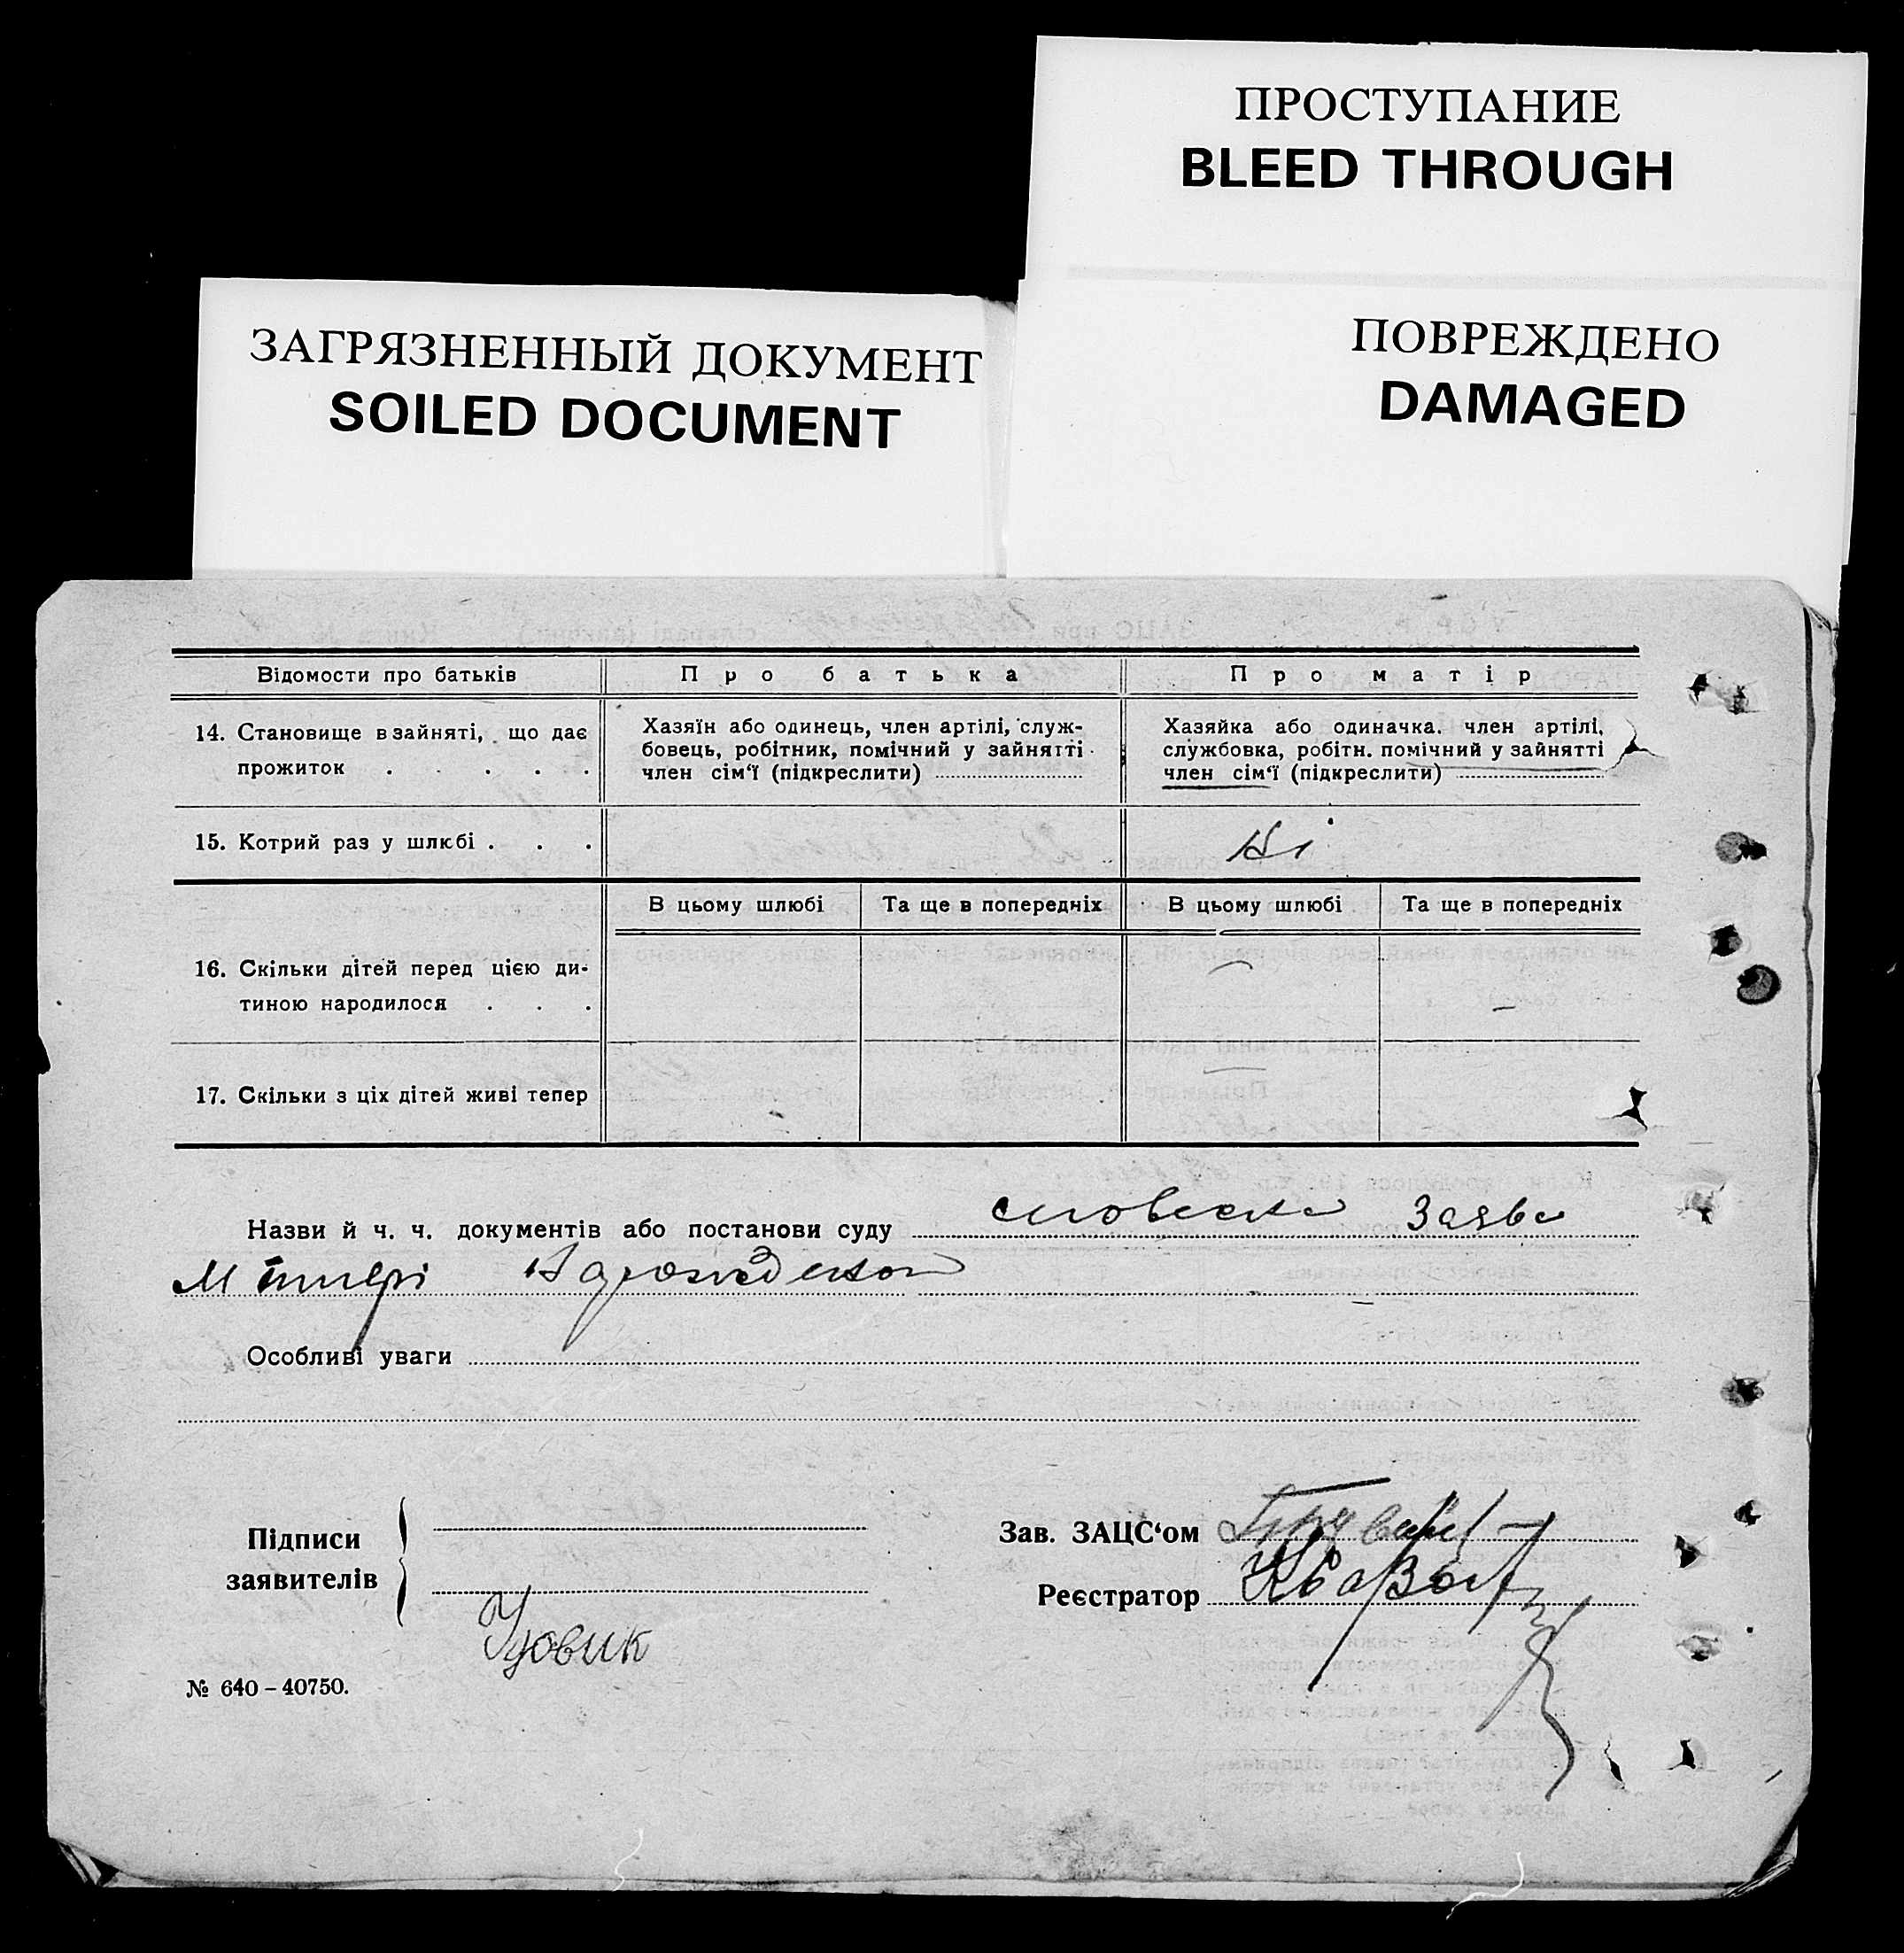 ПРОСТУПАНИЕ
BLEED THROUGH
ЗАГРЯЗНЕННЫЙ ДОКУМЕНТ
SOILED DOCUMENT
ПОВРЕЖДЕНО
DAMAGED
Відомости про батьків
Про батька
Про матір
14. Становище в зайняті, що дає
прожиток . . . . .
Хазяїн або одинець, член артілі, служ-
бовець, робітник, помічний у зайнятті
член сім‘ї (підкреслити)
Хазяйка або одиначка. член артілі,
службовка, робітн. помічний у зайнятті
член сім‘ї (підкреслити)
15. Котрий раз у шлюбі . . .
Ні
В цьому шлюбі
Та ще в попередніх
В цьому шлюбі
Та ще в попередніх
16. Скільки дітей перед цією ди-
тиною народилося . . .
—
—
17. Скільки з ціх дітей живі тепер
Назви й ч. ч. документів або постанови суду словесна Заява
Матері
Особливі уваги
Підписи
заявителів
Удовик
Зав. ЗАЦС‘ом
Реєстратор
№ 640 – 40750.